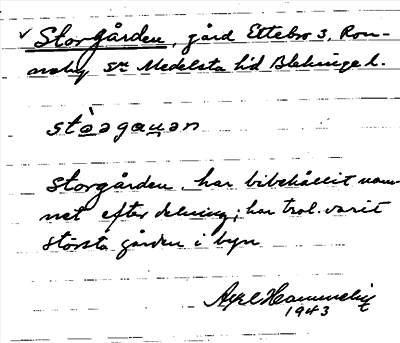 ✓ Storgården, gård Ettebro 3, Ron-
neby sn Medelsta hd Blekinge l.
stòǝgauǝn
Storgården har bibehållit nam-
net efter delning; har trol. varit
största gården i byn
Axel Hammelig
1943